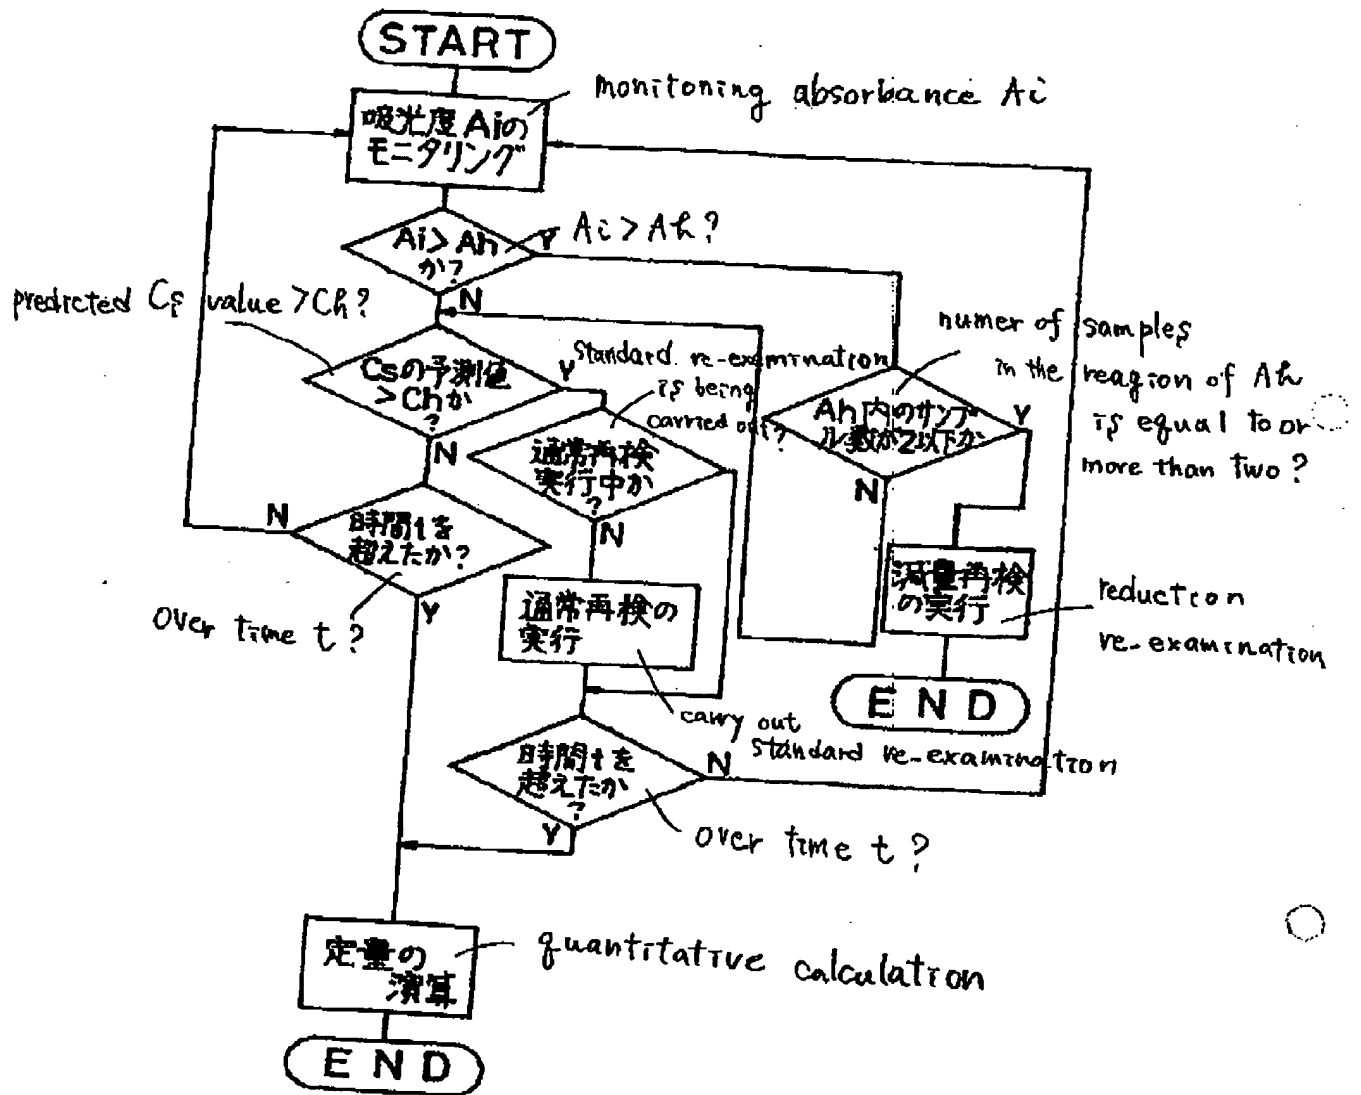 START
monitoning absorbance Ai
吸光度 Aiの
モニタリング
Ai > Ah
か?
Y
Ai > Ah?
N
predicted Cs value > Ch?
Csの予測値
> Chか
?
Y
N
Standard re-examination
is being
carried out?
通常再検
実行中か
?
N
numer of samples
in the reagion of Ah
is equal to or
more than two?
Ah内のサンプ
ル数が2以下か
Y
N
N
時間tを
超えたか?
Y
Over time t?
通常再検の
実行
carry out
standard re-examination
減量再検
の実行
reduction
re-examination
END
時間tを
超えたか
?
N
Y
over time t?
定量の
演算
quantitative calculation
END